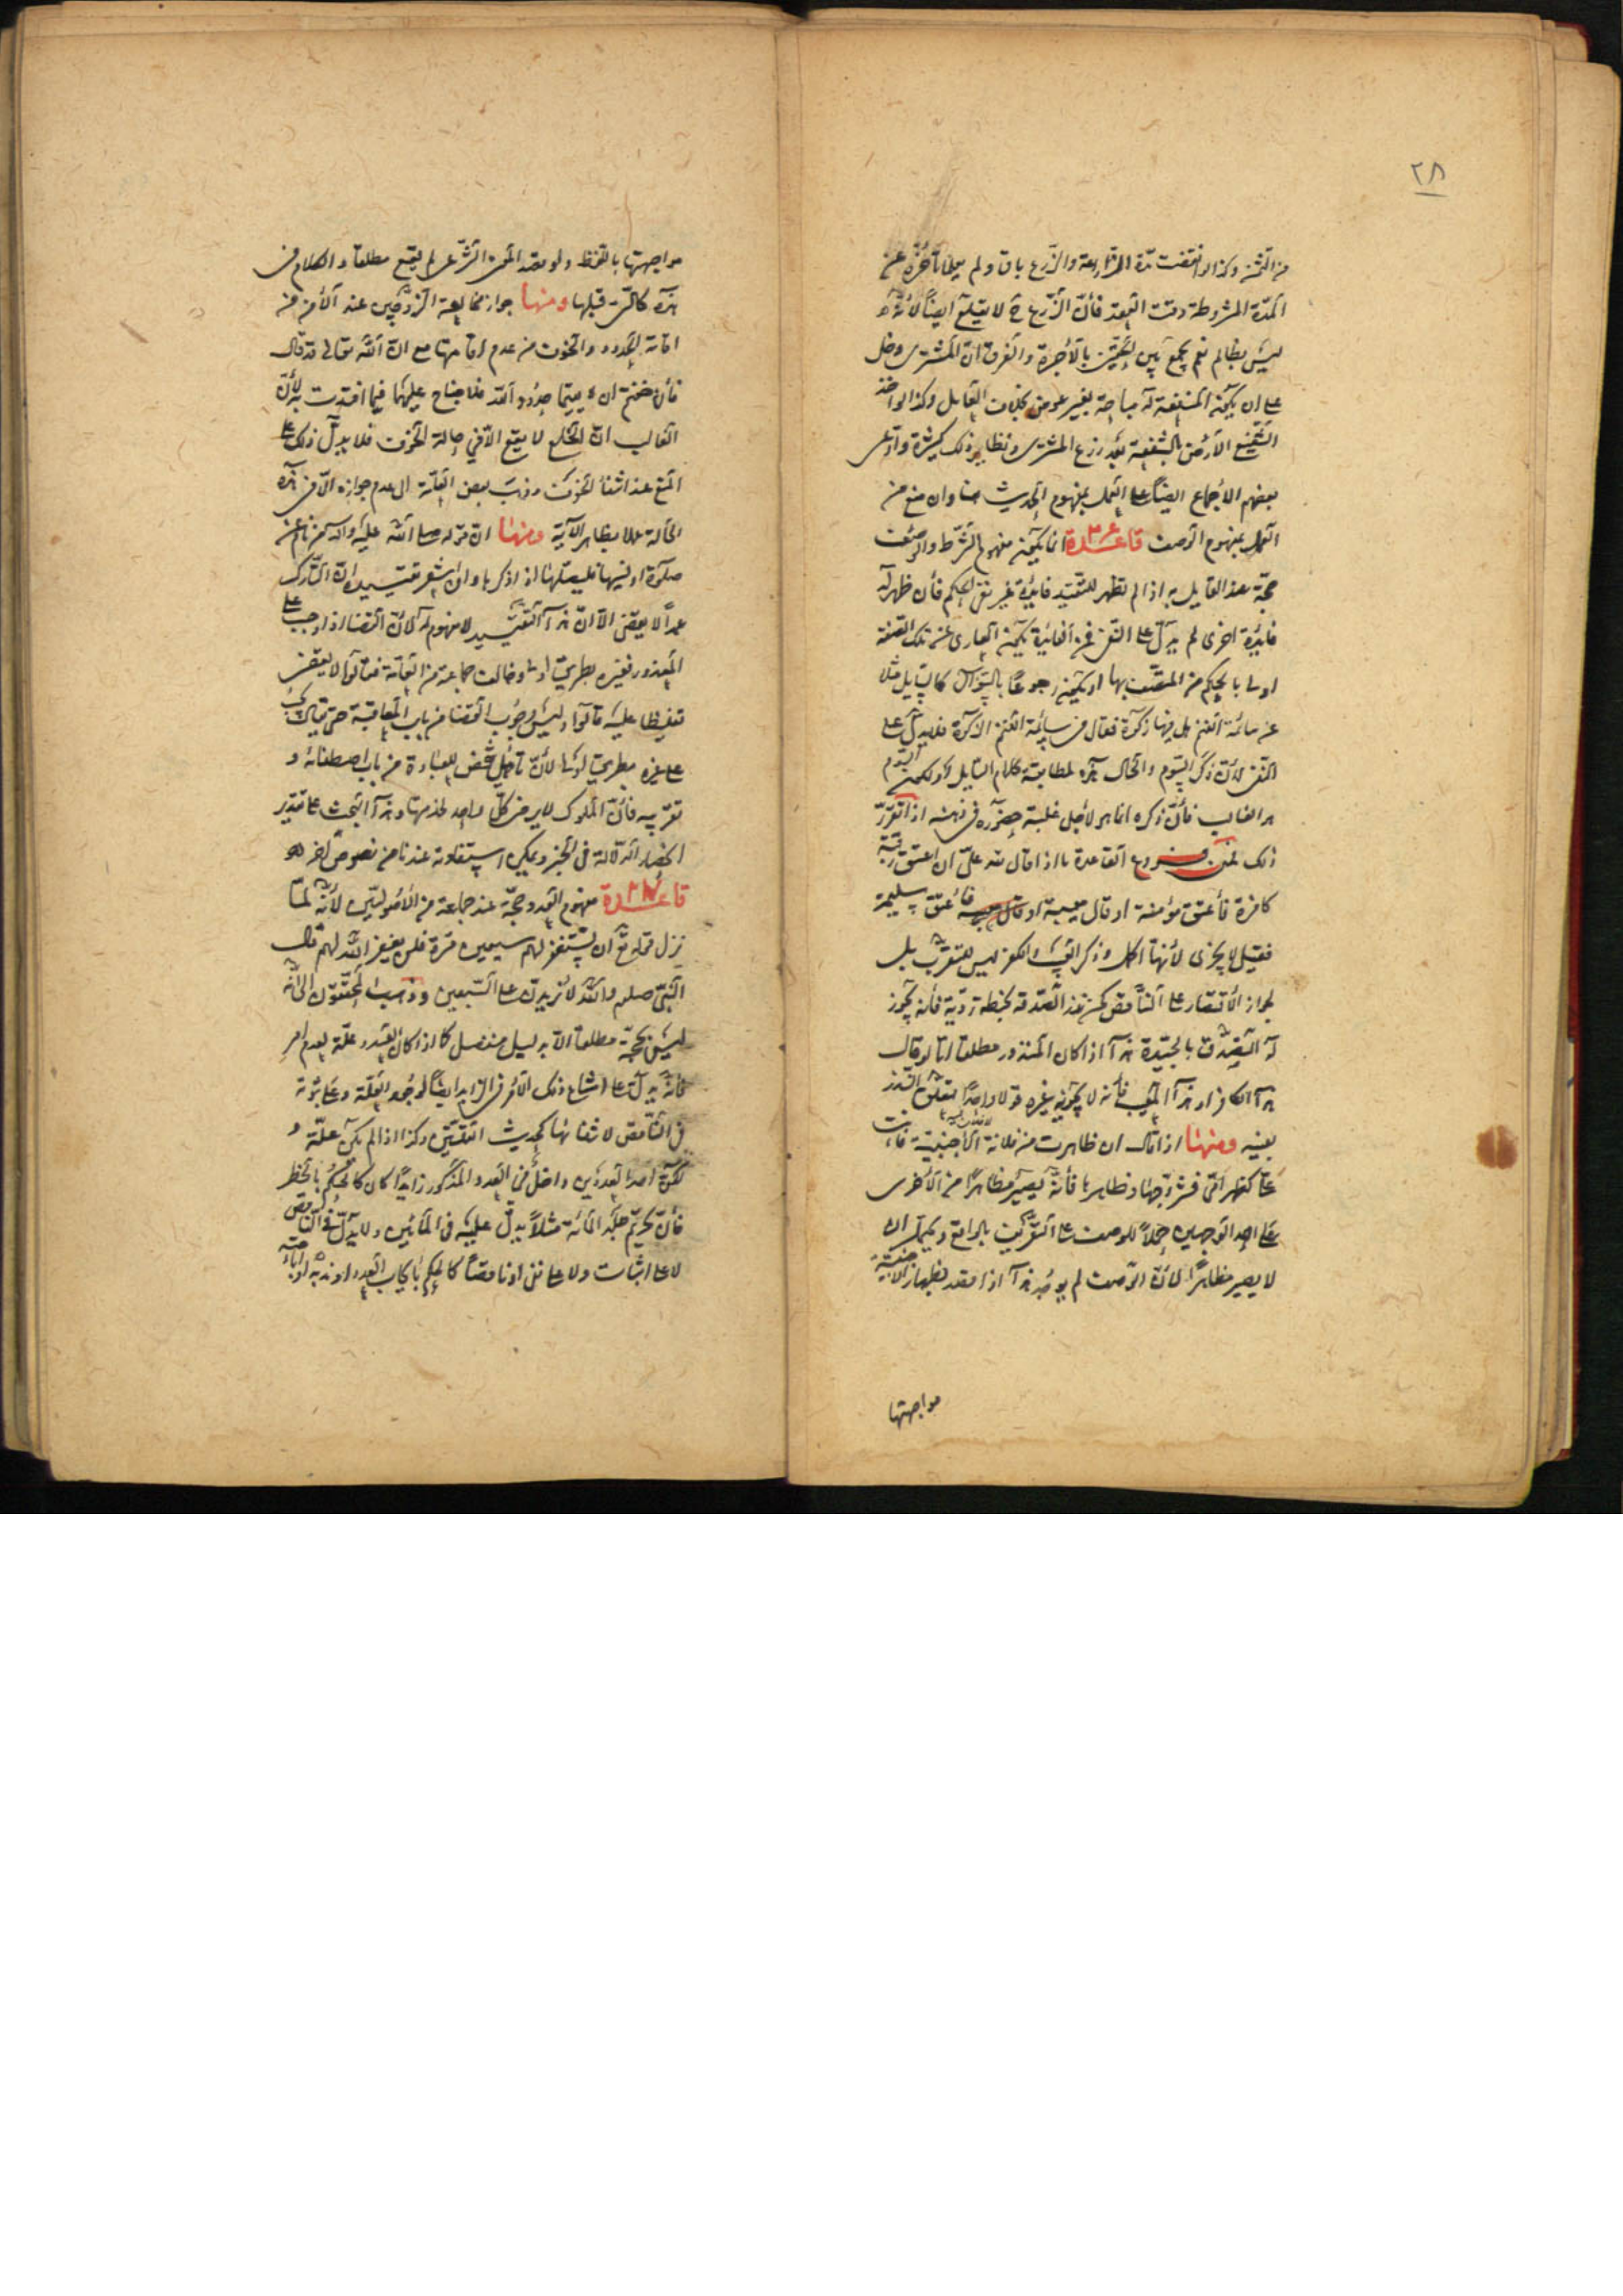 ٢٨
من الثمن وكذا لو انقضت مدة المزارعة والزرع باق ولم يعلما تأخره عن
المدة المشروطة وقت العقد فأن الزرع ح لا يقلع ايضاً لأنه
ليس بظالم نعم يجمع بين الحقين بالأجرة والفرق ان المشترى دخل
على ان يكون المنفعة له مباحة بغير عوض بخلاف العامل وكذا لو اخذ
الشفيع الأرض بالشفعة بعد زرع المشترى ونظاير ذلك كثيرة وادعى
بعضهم الاجماع ايضاً على العمل بمفهوم الحديث هنا وان منع من
العمل بمفهوم الوصف قاعدة انما يكون مفهوم الشرط والوصف
حجة عند القايل به اذا لم يظهر للتقييد فايدة غير نفى الحكم فأن ظهر له
فايدة اخرى لم يدل على النفى فمن الفايدة كون العارى عن تلك الصفة
اولى بالحكم من المتصف بها او يكون رجوعاً بالسؤال كالسايل مثلا
عن سائمة الغنم هل فيها زكوة فقال فى سايمة الغنم الزكوة فلا يدل على
النفى لأن ذكر السوم والحال هذه لمطابقة كلام السايل او لكون السوم
هو الغالب فأن ذكره انما هو لاجل غلبة حضوره فى ذهنه اذا تقرر
ذلك فمن فروع القاعدة ما اذا قال لله علىّ ان اعتق رقبة
كافرة فأعتق مؤمنة او قال معيبة فأعتق سليمة
فقيل لا يجزى لأنها اكمل وذكر العيب والكفر ليس للتقرب بل
لجواز الأقتصار على الناقص كمن نذر الصدقة بحنطة ردية فأنه يجوز
له التصدق بالجيدة هذا اذا كان المنذور مطلقا اما لو قال
هذا الكافر او هذا المعيب فأنه لا يجزيه غيره قولا واحداً لتعلق النذر
بعينه ومنها اذا قال ان ظاهرت من فلانة الأجنبية فأنت
علىّ كظهر امى فتزوجها وظاهرها فأنه يصير مظاهراً من الأخرى
على احد الوجهين حملاً للوصف على التعريف بالواقع ويحتمل ان
لا يصير مظاهراً لأن الوصف لم يوجد هذا اذا قصد بظهار الأجنبية
مواجهتها
مواجهتها باللفظ ولو قصد المعنى الشرعى لم يقع مطلقا والكلام فى
هذه كالتى قبلها ومنها جواز مخالعة الزوجين عند الأمن من
اقامة الحدود والخوف من عدم اقامتها مع ان الله تعالى قد قال
فأن خفتم ان لا يقيما حدود الله فلا جناح عليهما فيما افتدت به لأن
الغالب ان الخلع لا يقع الا فى حالة الخوف فلا يدل ذلك على
المنع عند انتفاء الخوف وذهب بعض العامة الى عدم جوازه الا فى هذه
الحالة عملا بظاهر الآية ومنها ان قوله صلى الله عليه وآله من نام عن
صلوة او نسيها فليصلها اذا ذكرها وان اشعر تقييده ان التارك
عمداً لا يقضى الا ان هذا التقييد لا مفهوم له لأن القضا اذا وجب على
المعذور فغيره بطريق اولى وخالف جماعة من العامة فقالوا لا يقضى
تغليظا عليه قالوا وليس وجوب القضا من باب المعاقبة حتى يقال يجب
على غيره بطريق اولى لأن تأهيل شخص للعبادة من باب اصطفائه و
تقريبه فأن الملوك لا يرضى كل واحد لخدمتها وهذا البحث على تقدير
انحصار الدلالة فى الخبر ويمكن استفادته عندنا من نصوص اخر
قاعدة مفهوم العدد حجة عند جماعة من الأصوليين لأنه لما
نزل قوله تع ان تستغفر لهم سبعين مرة فلن يغفر الله لهم قال
النبى صلعم والله لأزيدن على السبعين وذهب المحققون الى انه
ليس بحجة مطلقا الا بدليل منفصل كما اذا كان العدد علة لعدم امر
فأنه يدل على امتناع ذلك الأمر فى الزايد ايضاً لوجود العلة وعلى ثبوته
فى الناقص لانتفائها كحديث القلتين وكذا اذا لم يكن علة و
لكن احد العددين داخل فى العدد المذكور زايداً كان كالحكم بالحظر
فأن تحريم جلد المائة مثلاً يدل عليه فى المأتين ولا يدل فى الناقص
لا على اثبات ولا على نفى او ناقصاً كالحكم بايجاب العدد او ندبه او اباحته